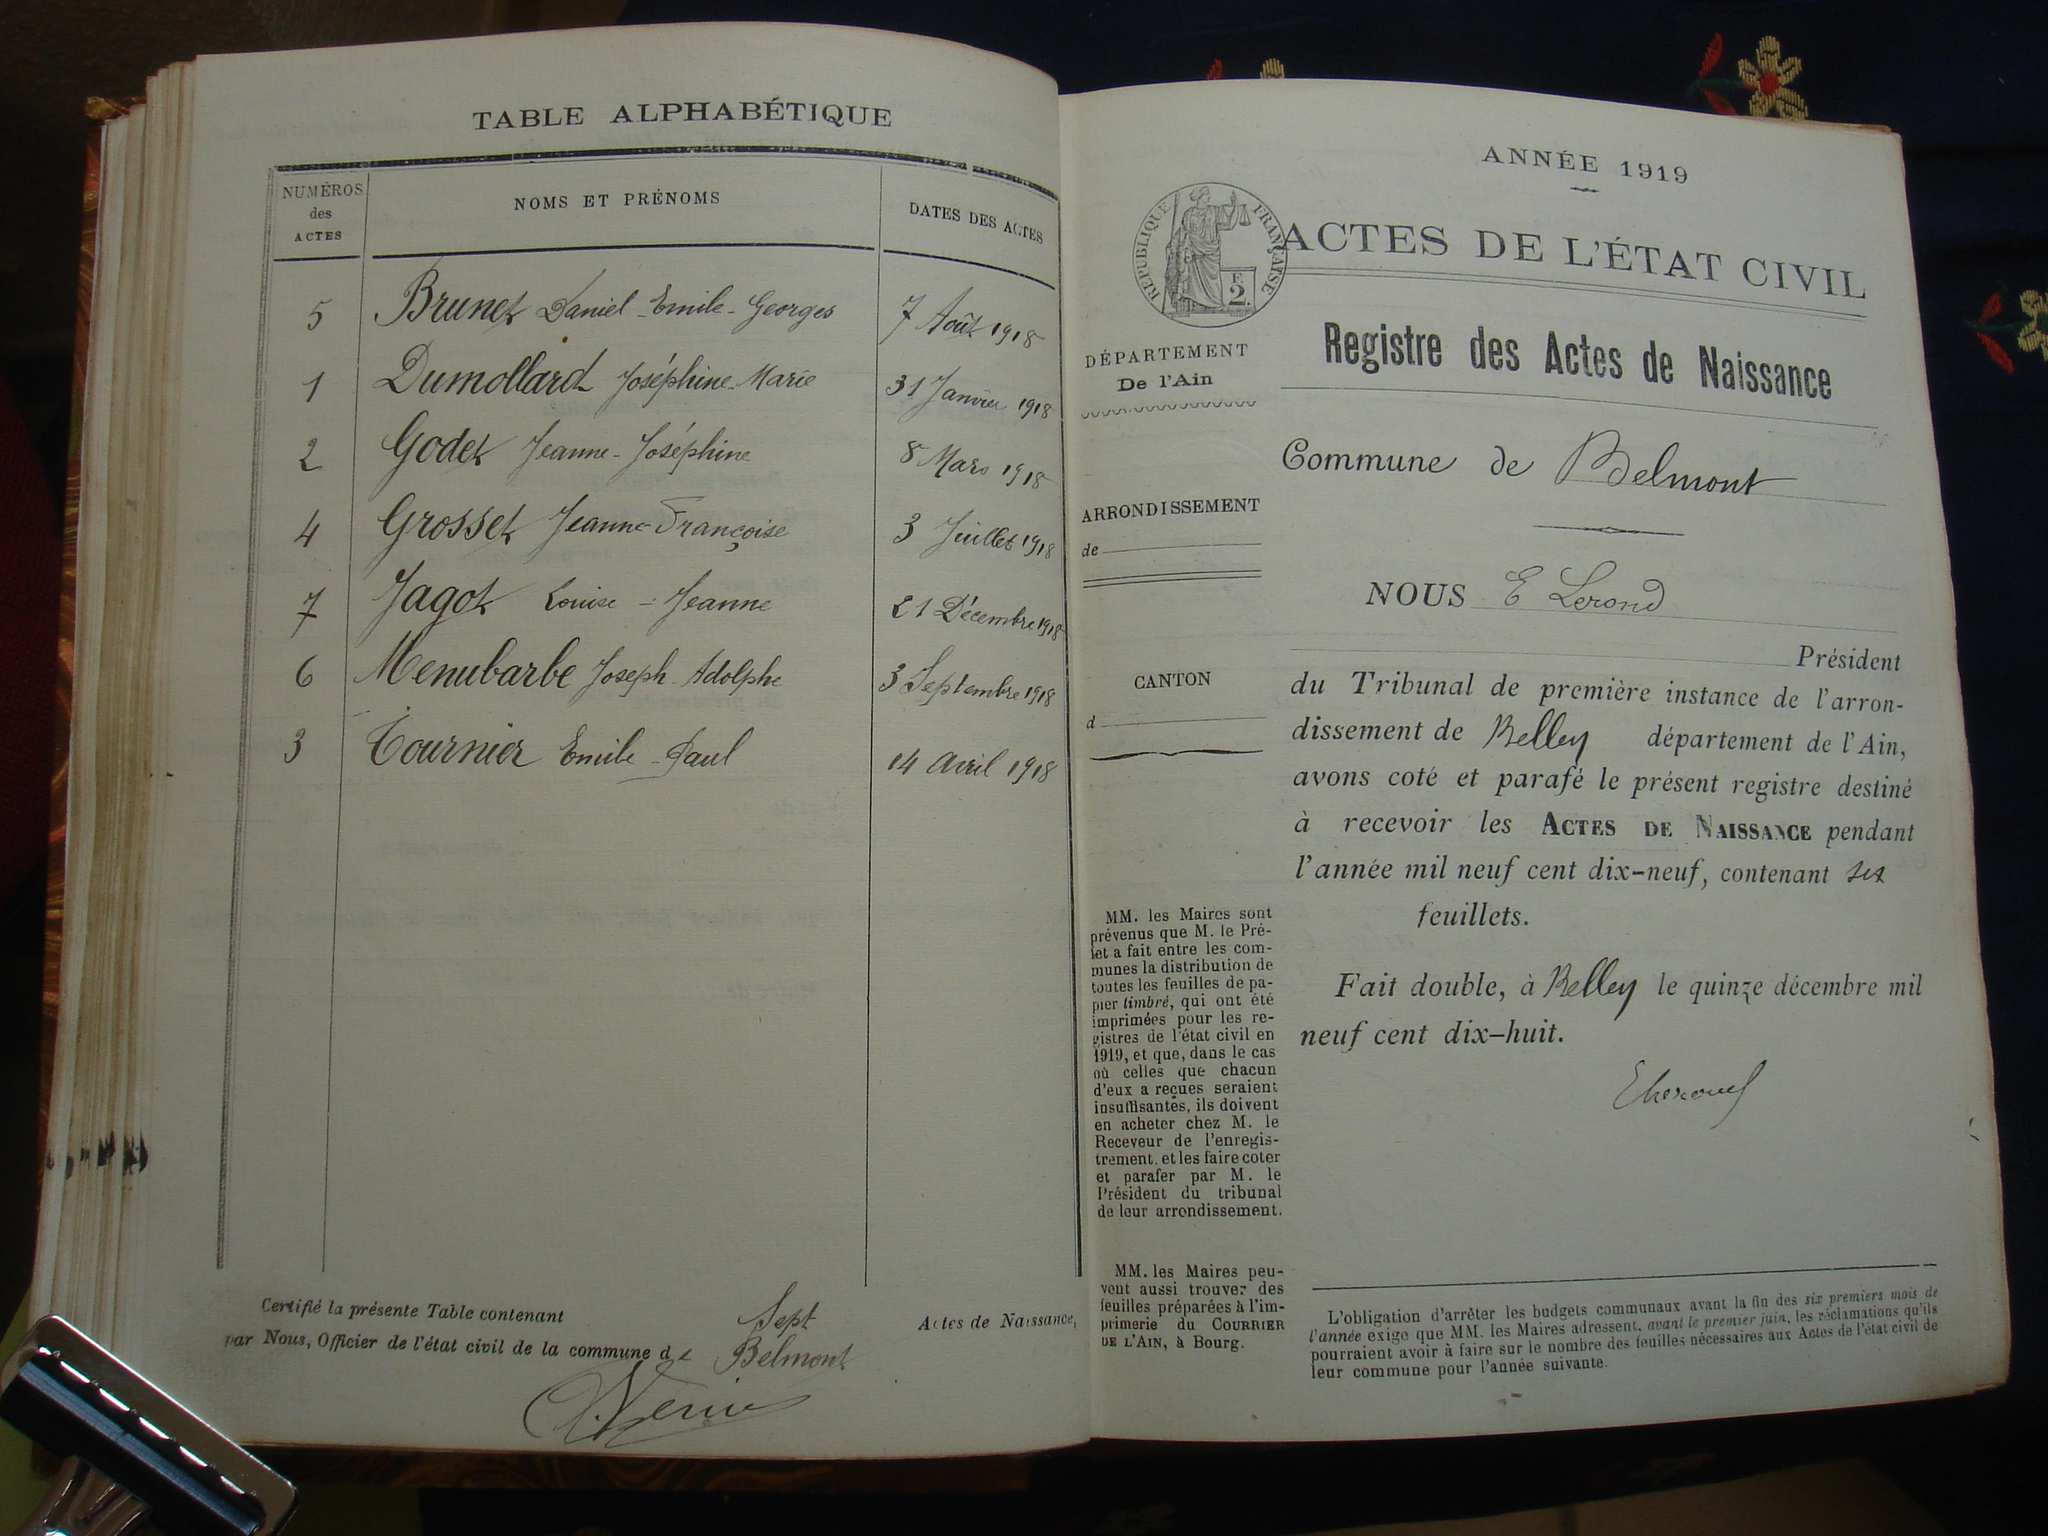 TABLE ALPHABÉTIQUE
NUMÉROS
des
ACTES
NOMS ET PRÉNOMS
DATES DES ACTES
5 Brunet Daniel-Emile-Georges 7 Août 1918
1 Dumollard Joséphine-Marie 31 Janvier 1918
2 Godet Jeanne-Joséphine 8 Mars 1918
4 Grosset Jeanne-Françoise 3 Juillet 1918
7 Jagot Louise-Jeanne 21 Décembre 1918
6 Menubarbe Joseph-Adolphe 3 Septembre 1918
3 Tournier Emile-Paul 14 Avril 1918
Certifié la présente Table contenant Sept Actes de Naissance,
par Nous, Officier de l'état civil de la commune de Belmont
ANNÉE 1919
RÉPUBLIQUE FRANÇAISE
F.
2.
ACTES DE L'ÉTAT CIVIL
Registre des Actes de Naissance
DÉPARTEMENT
De l'Ain
Commune de Belmont
ARRONDISSEMENT
de
CANTON
d
NOUS E
Président
du Tribunal de première instance de l'arron-
dissement de Belley département de l'Ain,
avons coté et parafé le présent registre destiné
à recevoir les ACTES DE NAISSANCE pendant
l'année mil neuf cent dix-neuf, contenant six
feuillets.
Fait double, à Belley le quinze décembre mil
neuf cent dix-huit.
MM. les Maires sont
prévenus que M. le Pré-
fet a fait entre les com-
munes la distribution de
toutes les feuilles de pa-
pier timbré, qui ont été
imprimées pour les re-
gistres de l'état civil en
1919, et que, dans le cas
où celles que chacun
d'eux a reçues seraient
insuffisantes, ils doivent
en acheter chez M. le
Receveur de l'enregis-
trement, et les faire coter
et parafer par M. le
Président du tribunal
de leur arrondissement.
MM. les Maires peu-
vent aussi trouver des
feuilles préparées à l'im-
primerie du COURRIER
DE L'AIN, à Bourg.
L'obligation d'arrêter les budgets communaux avant la fin des six premiers mois de
l'année exige que MM. les Maires adressent, avant le premier juin, les réclamations qu'ils
pourraient avoir à faire sur le nombre des feuilles nécessaires aux Actes de l'état civil de
leur commune pour l'année suivante.